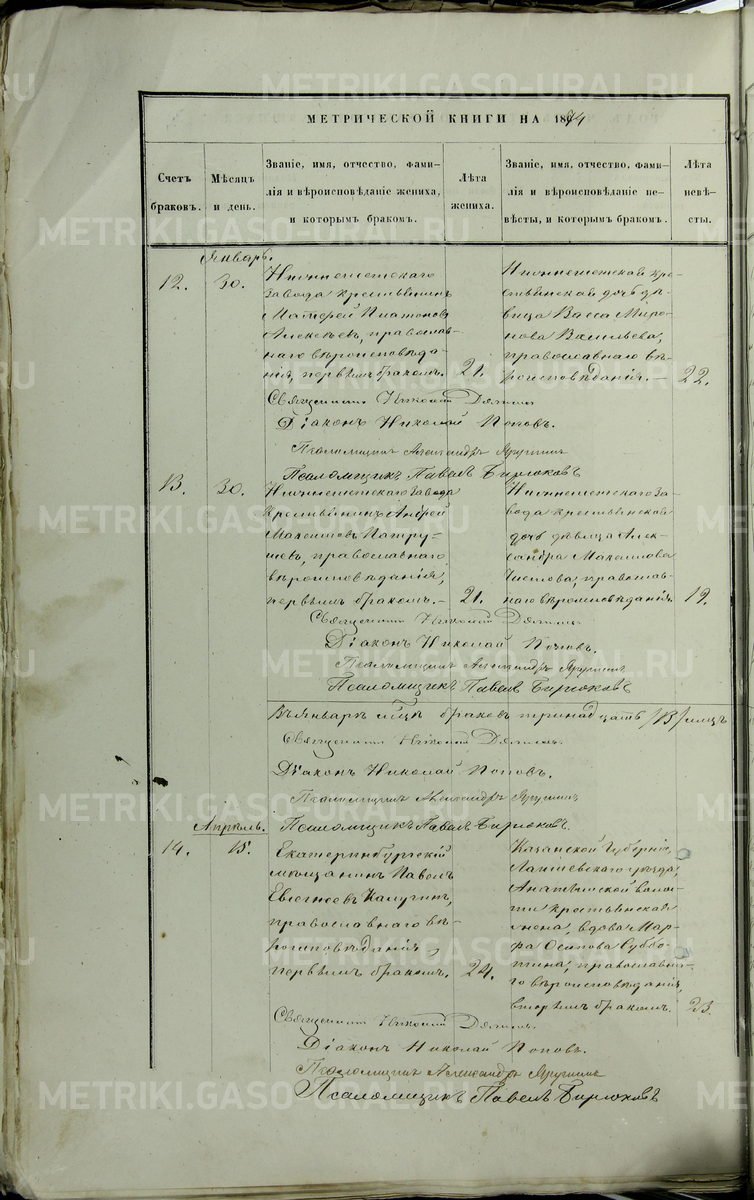 МЕТРИЧЕСКОЙ КНИГИ НА 1884
Счетъ браковъ.
Мѣсяцъ и день.
Званіе, имя, отчество, фами-
лія и вѣроисповѣданіе жениха,
и которымъ бракомъ.
Лѣта жениха.
Званіе, имя, отчество, фами-
лія и вѣроисповѣданіе не-
вѣсты, и которымъ бракомъ.
Лѣта невѣ-
сты.
Январь.
12.
30.
завода крестьянинъ
Матфей Платоновъ
Алексѣевъ, православ-
наго вѣроисповѣда-
нія, первымъ бракомъ.
21.
кре-
стьянская дочь дѣ-
вица Васса Миро-
нова Васильева,
православнаго вѣ-
роисповѣданія. —
22.
Священникъ Николай
Діаконъ Николай Поповъ.
Псаломщикъ Александръ
Псаломщикъ Павелъ Бирюковъ
13.
30.
завода
крестьянинъ Андрей
Максимовъ Патру-
шевъ, православнаго
вѣроисповѣданія,
первымъ бракомъ. —
21.
за-
вода крестьянская
дочь дѣвица Алек-
сандра Максимова
Чистова, православ-
наго вѣроисповѣданія.
19.
Священникъ Николай
Діаконъ Николай Поповъ.
Псаломщикъ Александръ
Псаломщикъ Павелъ Бирюковъ
Въ Январѣ м-цѣ браковъ тринадцать /13/
Священникъ Николай
Діаконъ Николай Поповъ.
Псаломщикъ Александръ
Псаломщикъ Павелъ Бирюковъ.
Апрѣль.
14.
15.
Екатеринбургскій
мѣщанинъ Павелъ
Евгеніевъ Калугинъ,
православнаго вѣ-
роисповѣданія,
первымъ бракомъ.
24.
Казанской Губерніи,
Лаишевскаго уѣзда,
воло-
сти крестьянская
жена, вдова Мар-
фа Осипова Суббо-
тина, православна-
го вѣроисповѣданія,
вторымъ бракомъ.
23.
Священникъ Николай
Діаконъ Николай Поповъ.
Псаломщикъ Александръ
Псаломщикъ Павелъ Бирюковъ
METRIKI.GASO-URAL.RU